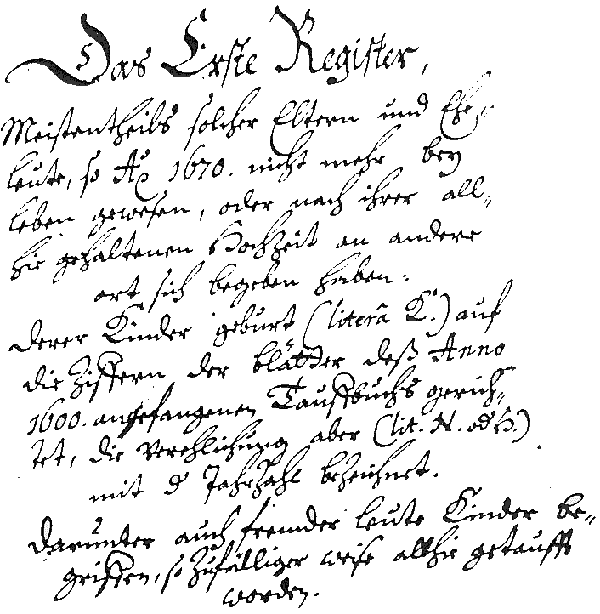 Das Erste Register,
Meistentheils solcher Eltern und Ehe-
leute, so Ao 1670. nicht mehr bey
leben gewesen, oder nach ihrer all-
hie gehaltenen Hochzeit an andere
ort sich begeben haben.
derer Kinder geburt (literâ K.) auf
die Ziffern der blätter deß Anno
1600. angefangenen Tauffbuchs gerich-
tet, die Verehlichung aber (lit. N. od H.)
mit d Jahrzahl bezeichnet.
darunter auch fremder leute Kinder be-
griffen, so zufälliger weise allhie getaufft
worden.